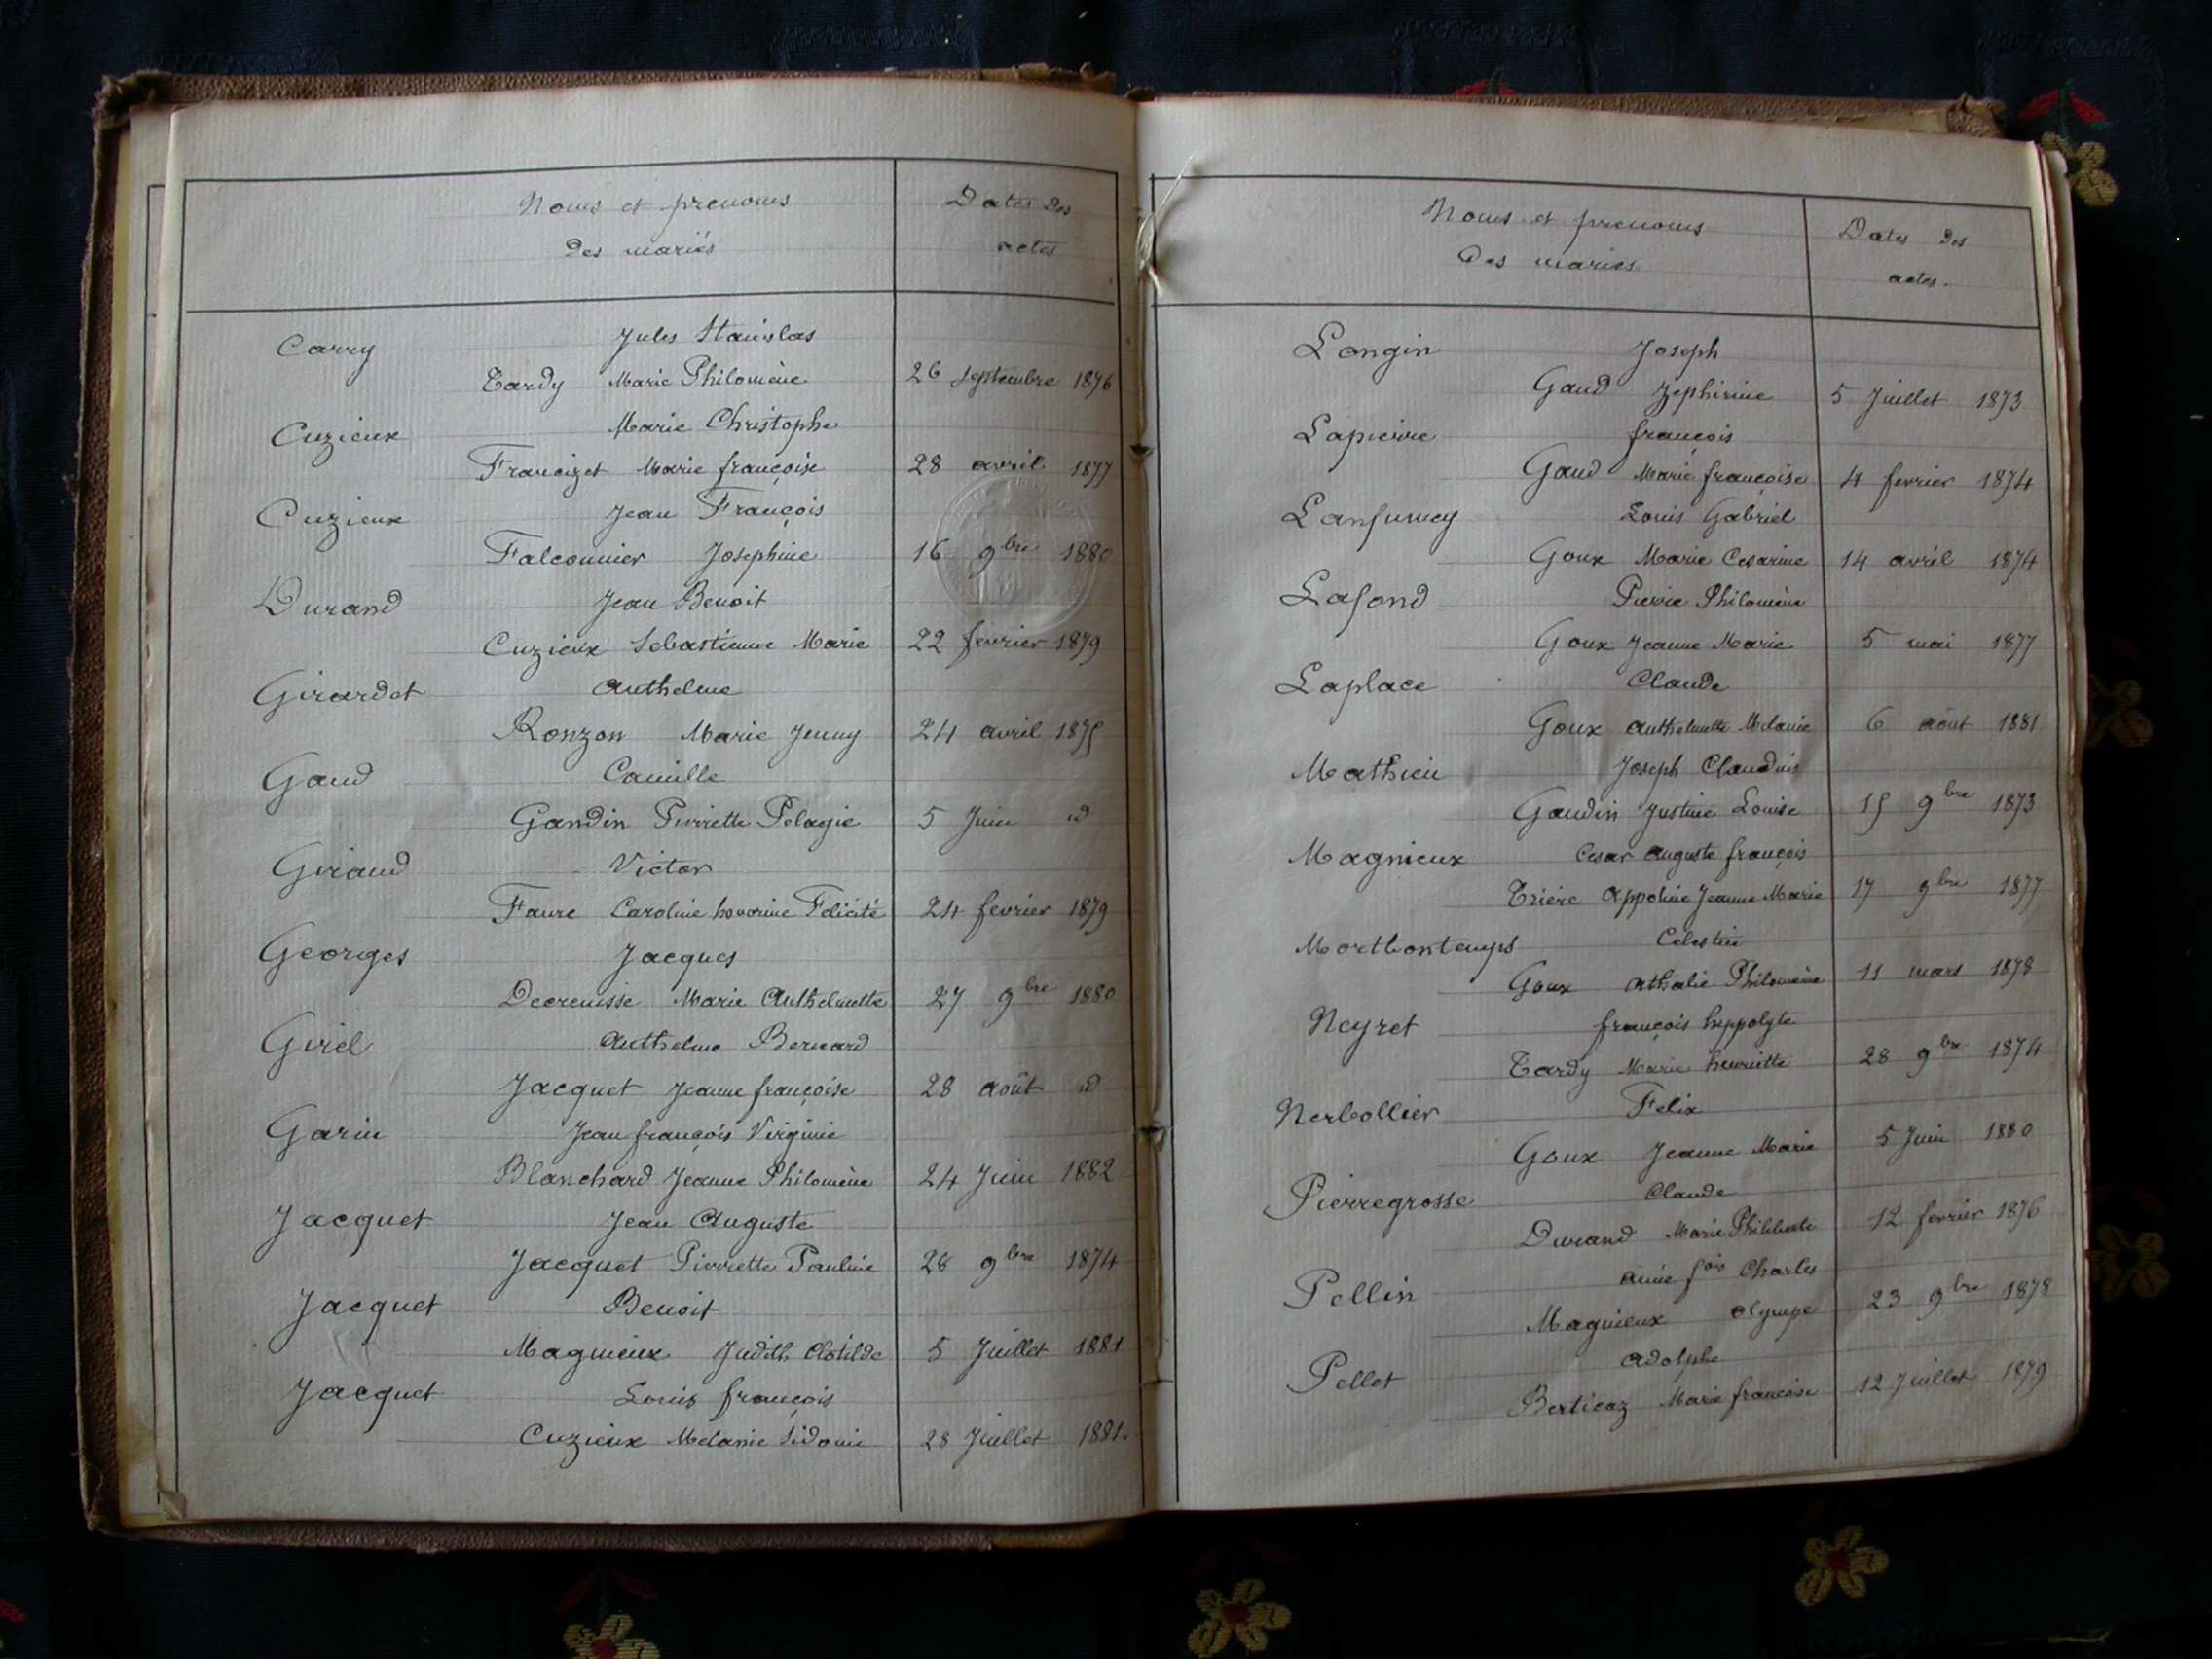 Noms et prenoms Dates des
des mariés actes
Carry Jules Stanislas
Tardy Marie Philomène 26 septembre 1876
Cuzieux Marie Christophe
Francizet Marie françoise 28 avril 1877
Cuzieux Jean François
Falconnier Josephine 16 9bre 1880
Durand Jean Benoit
Cuzieux Sebastienne Marie 22 fevrier 1879
Girardet Anthelme
Ronzon Marie Jenny 24 avril 1875
Gaud Camille
Gandin Pierrette Pelagie 5 Juin id
Giraud Victor
Faure Caroline honorine Felicité 24 fevrier 1879
Georges Jacques
Decreusse Marie Anthelmette 27 9bre 1880
Girel Anthelme Bernard
Jacquet Jeanne françoise 28 août id
Garin Jean françois Virginie
Blanchard Jeanne Philomène 24 Juin 1882
Jacquet Jean Auguste
Jacquet Pierrette Pauline 28 9bre 1874
Jacquet Benoit
Magnieux Judith Clotilde 5 Juillet 1881
Jacquet Louis françois
Cuzieux Melanie Sidonie 28 Juillet 1881.
Noms et prenoms Dates des
des mariés actes.
Longin Joseph
Gaud Zephirine 5 Juillet 1873
Lapierre françois
Gaud Marie françoise 4 fevrier 1874
Lanfumey Louis Gabriel
Goux Marie Cesarine 14 avril 1874
Lafond Pierre Philomène
Goux Jeanne Marie 5 mai 1877
Laplace Claude
Goux Anthelmette Melanie 6 août 1881
Mathieu Joseph Claudius
Gaudin Justine Louise 15 9bre 1873
Magnieux Cesar Auguste françois
Trière Appoline Jeanne Marie 17 9bre 1877
Mortbontemps Celestin
Goux Athalie Philomène 11 mars 1878
Neyret françois hyppolyte
Tardy Marie henriette 28 9bre 1874
Nerbollier Felix
Goux Jeanne Marie 5 Juin 1880
Pierregrosse Claude
Durand Marie Philiberte 12 fevrier 1876
Pellin Aimé fois Charles
Magnieux Olympe 23 9bre 1878
Pellet Adolphe
Berticoz Marie francoise 12 Juillet 1879